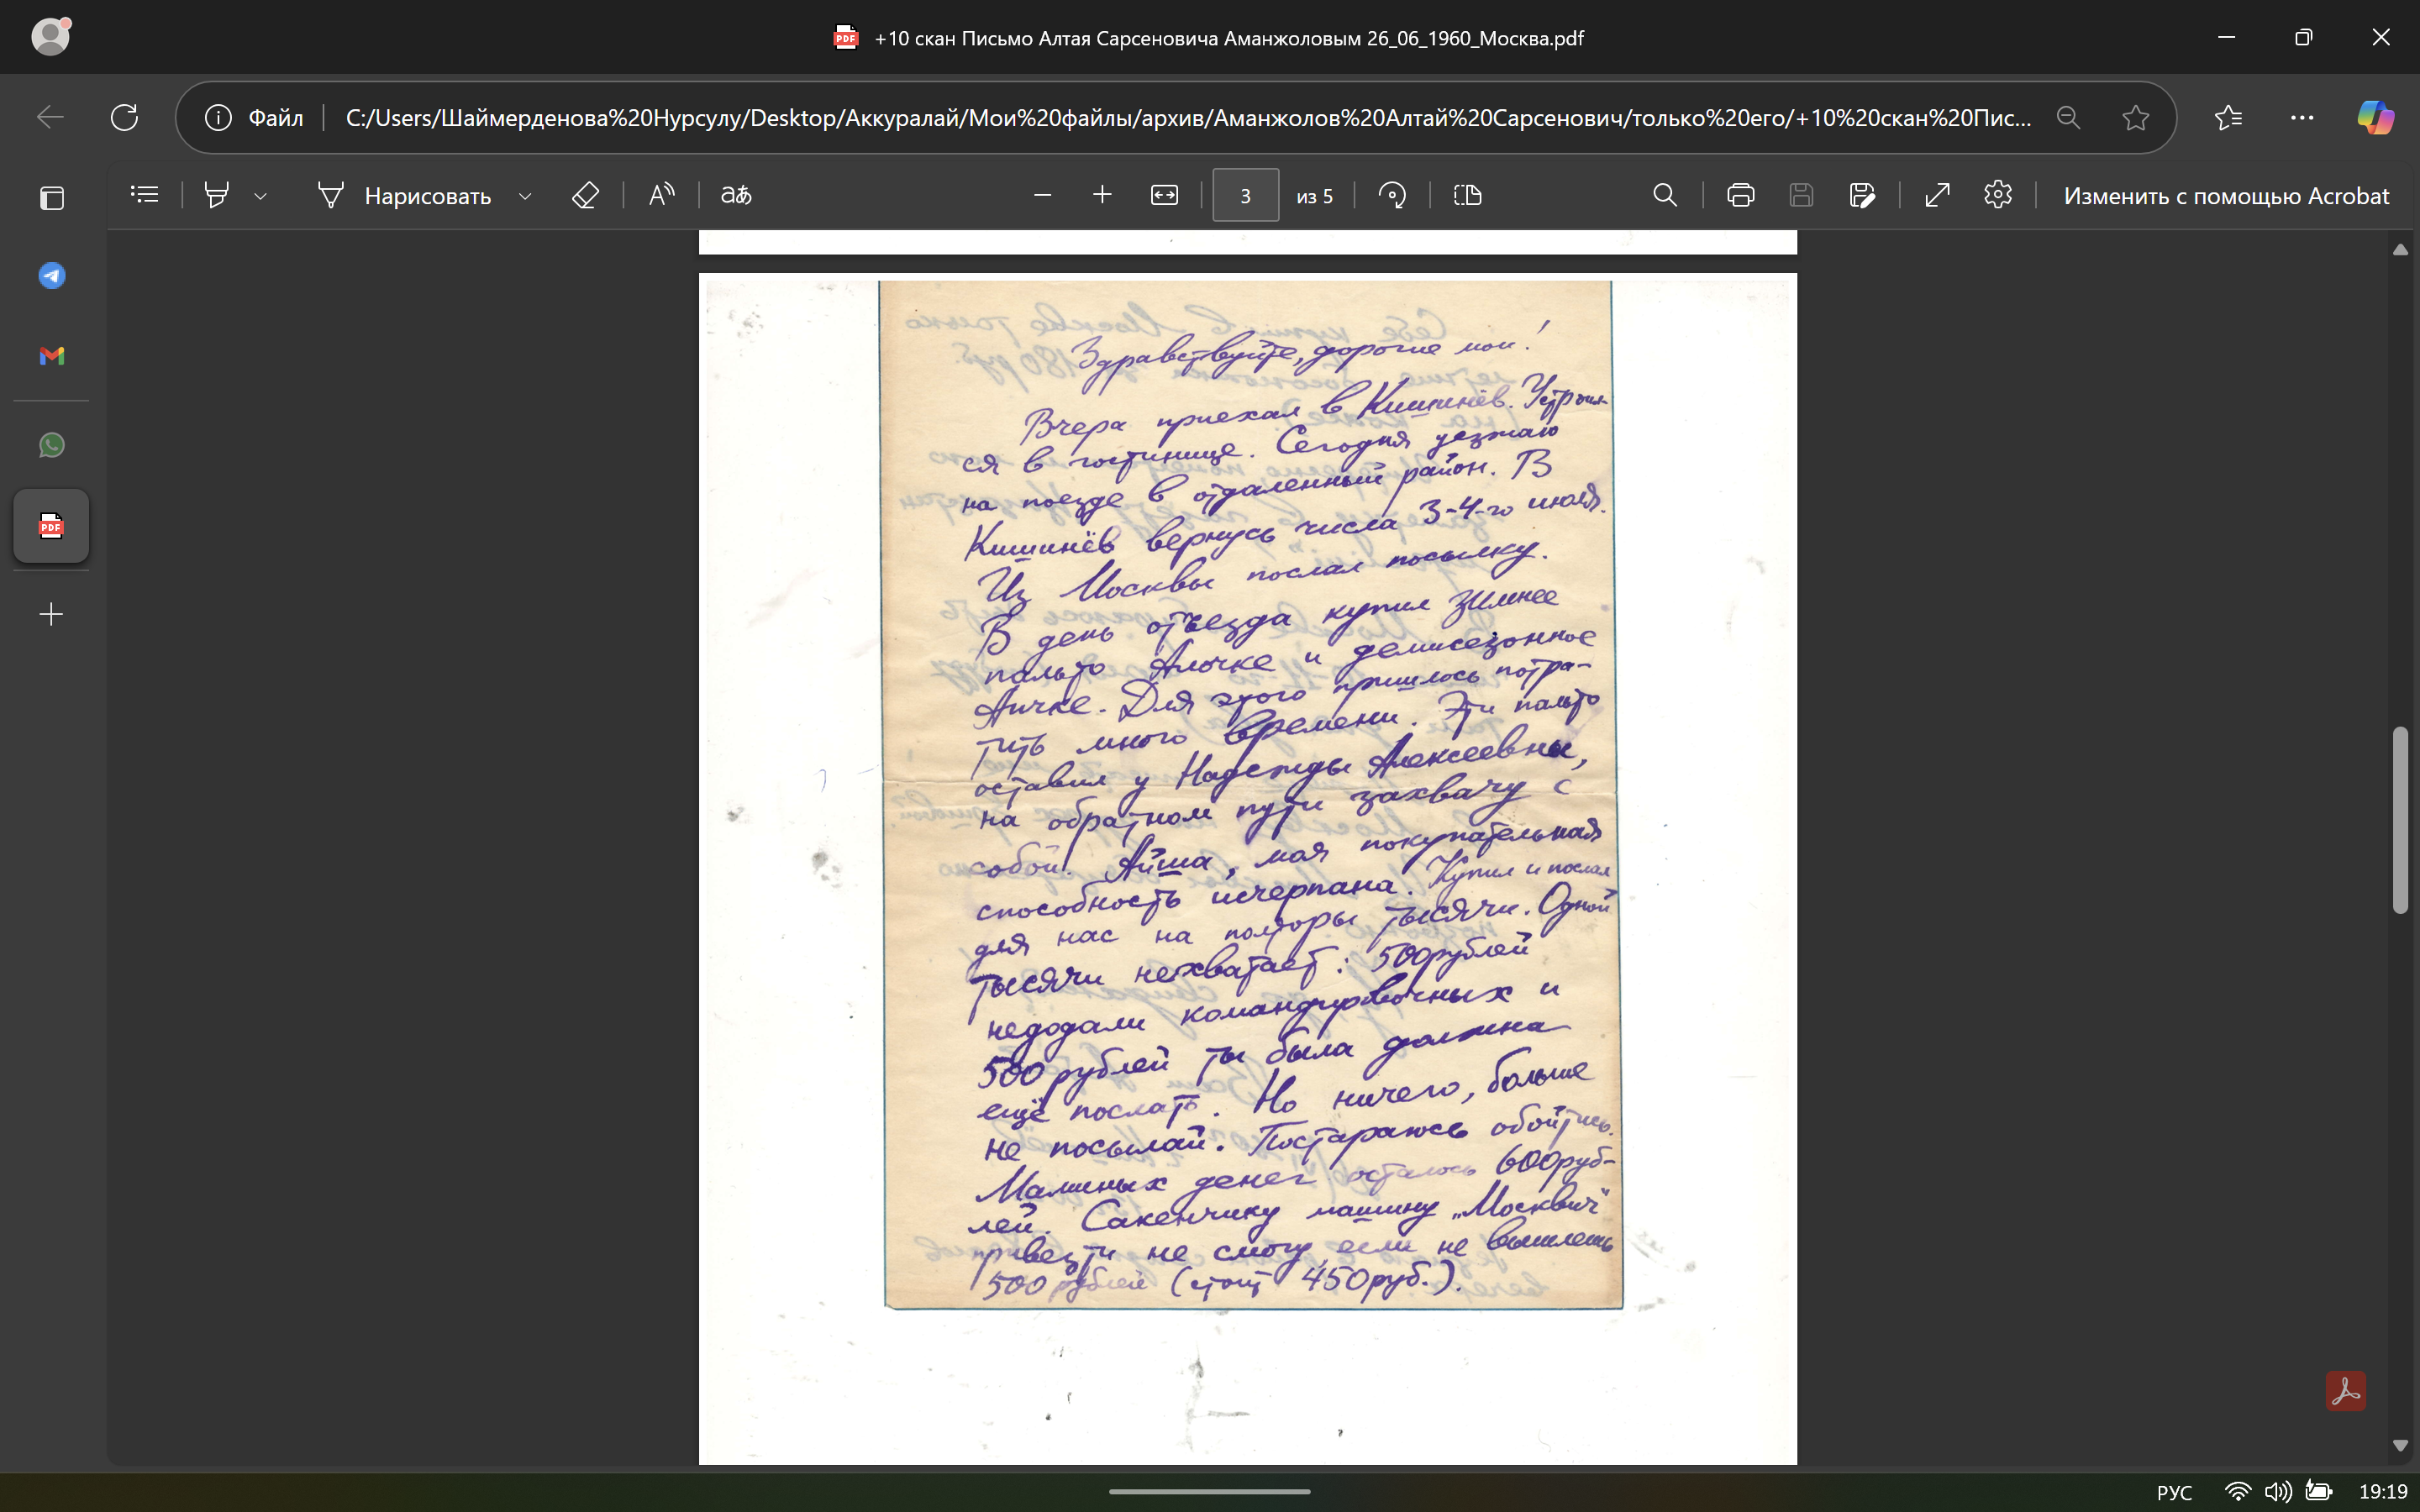 +10 скан Письмо Алтая Сарсеновича Аманжоловым 26_06_1960_Москва.pdf
Файл C:/Users/Шаймерденова%20Нурсулу/Desktop/Аккуралай/Мои%20файлы/архив/Аманжолов%20Алтай%20Сарсенович/только%20его/+10%20скан%20Пис...
Нарисовать 3 из 5 Изменить с помощью Acrobat
Здравствуйте, дорогие мои!
Вчера приехал в Кишинёв. Устроил-
ся в гостинице. Сегодня уезжаю
на поезде в отдаленный район. В
Кишинёв вернусь числа 3-4-го июля.
Из Москвы послал посылку.
В день отъезда купил зимнее
пальто Алочке и демисезонное
Аичке. Для этого пришлось потра-
тить много времени. Эти пальто
оставил у Надежды Алексеевны,
на обратном пути захвачу с
собой. Айша, моя покупательная
способность исчерпана. Купил и послал
для нас на полторы тысячи. Одной
тысячи нехватает: 500 рублей
недодали командировочных и
500 рублей ты была должна
ещё послать. Но ничего, больше
не посылай. Постараюсь обойтись.
Машиных денег осталось 600 руб-
лей. Сакенчику машину „Москвич"
привезти не смогу, если не вышлешь
500 рублей (стоит 450 руб.).
РУС 19:19